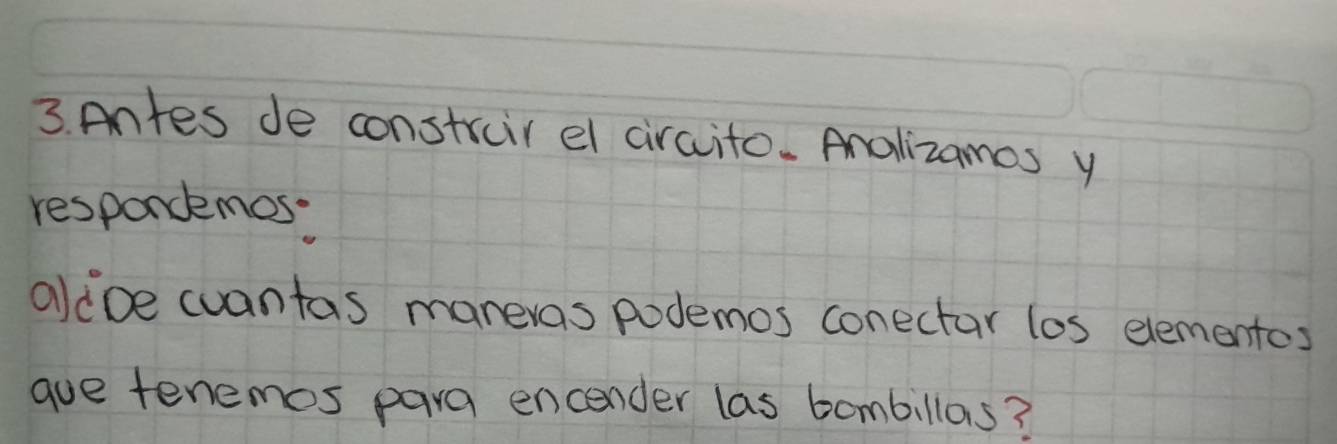 3. Antes de construir el circuito. Analizamos y
respondemos:
a) ¿De cuantas maneras podemos conectar los elementos
que tenemos para encender las bombillas?